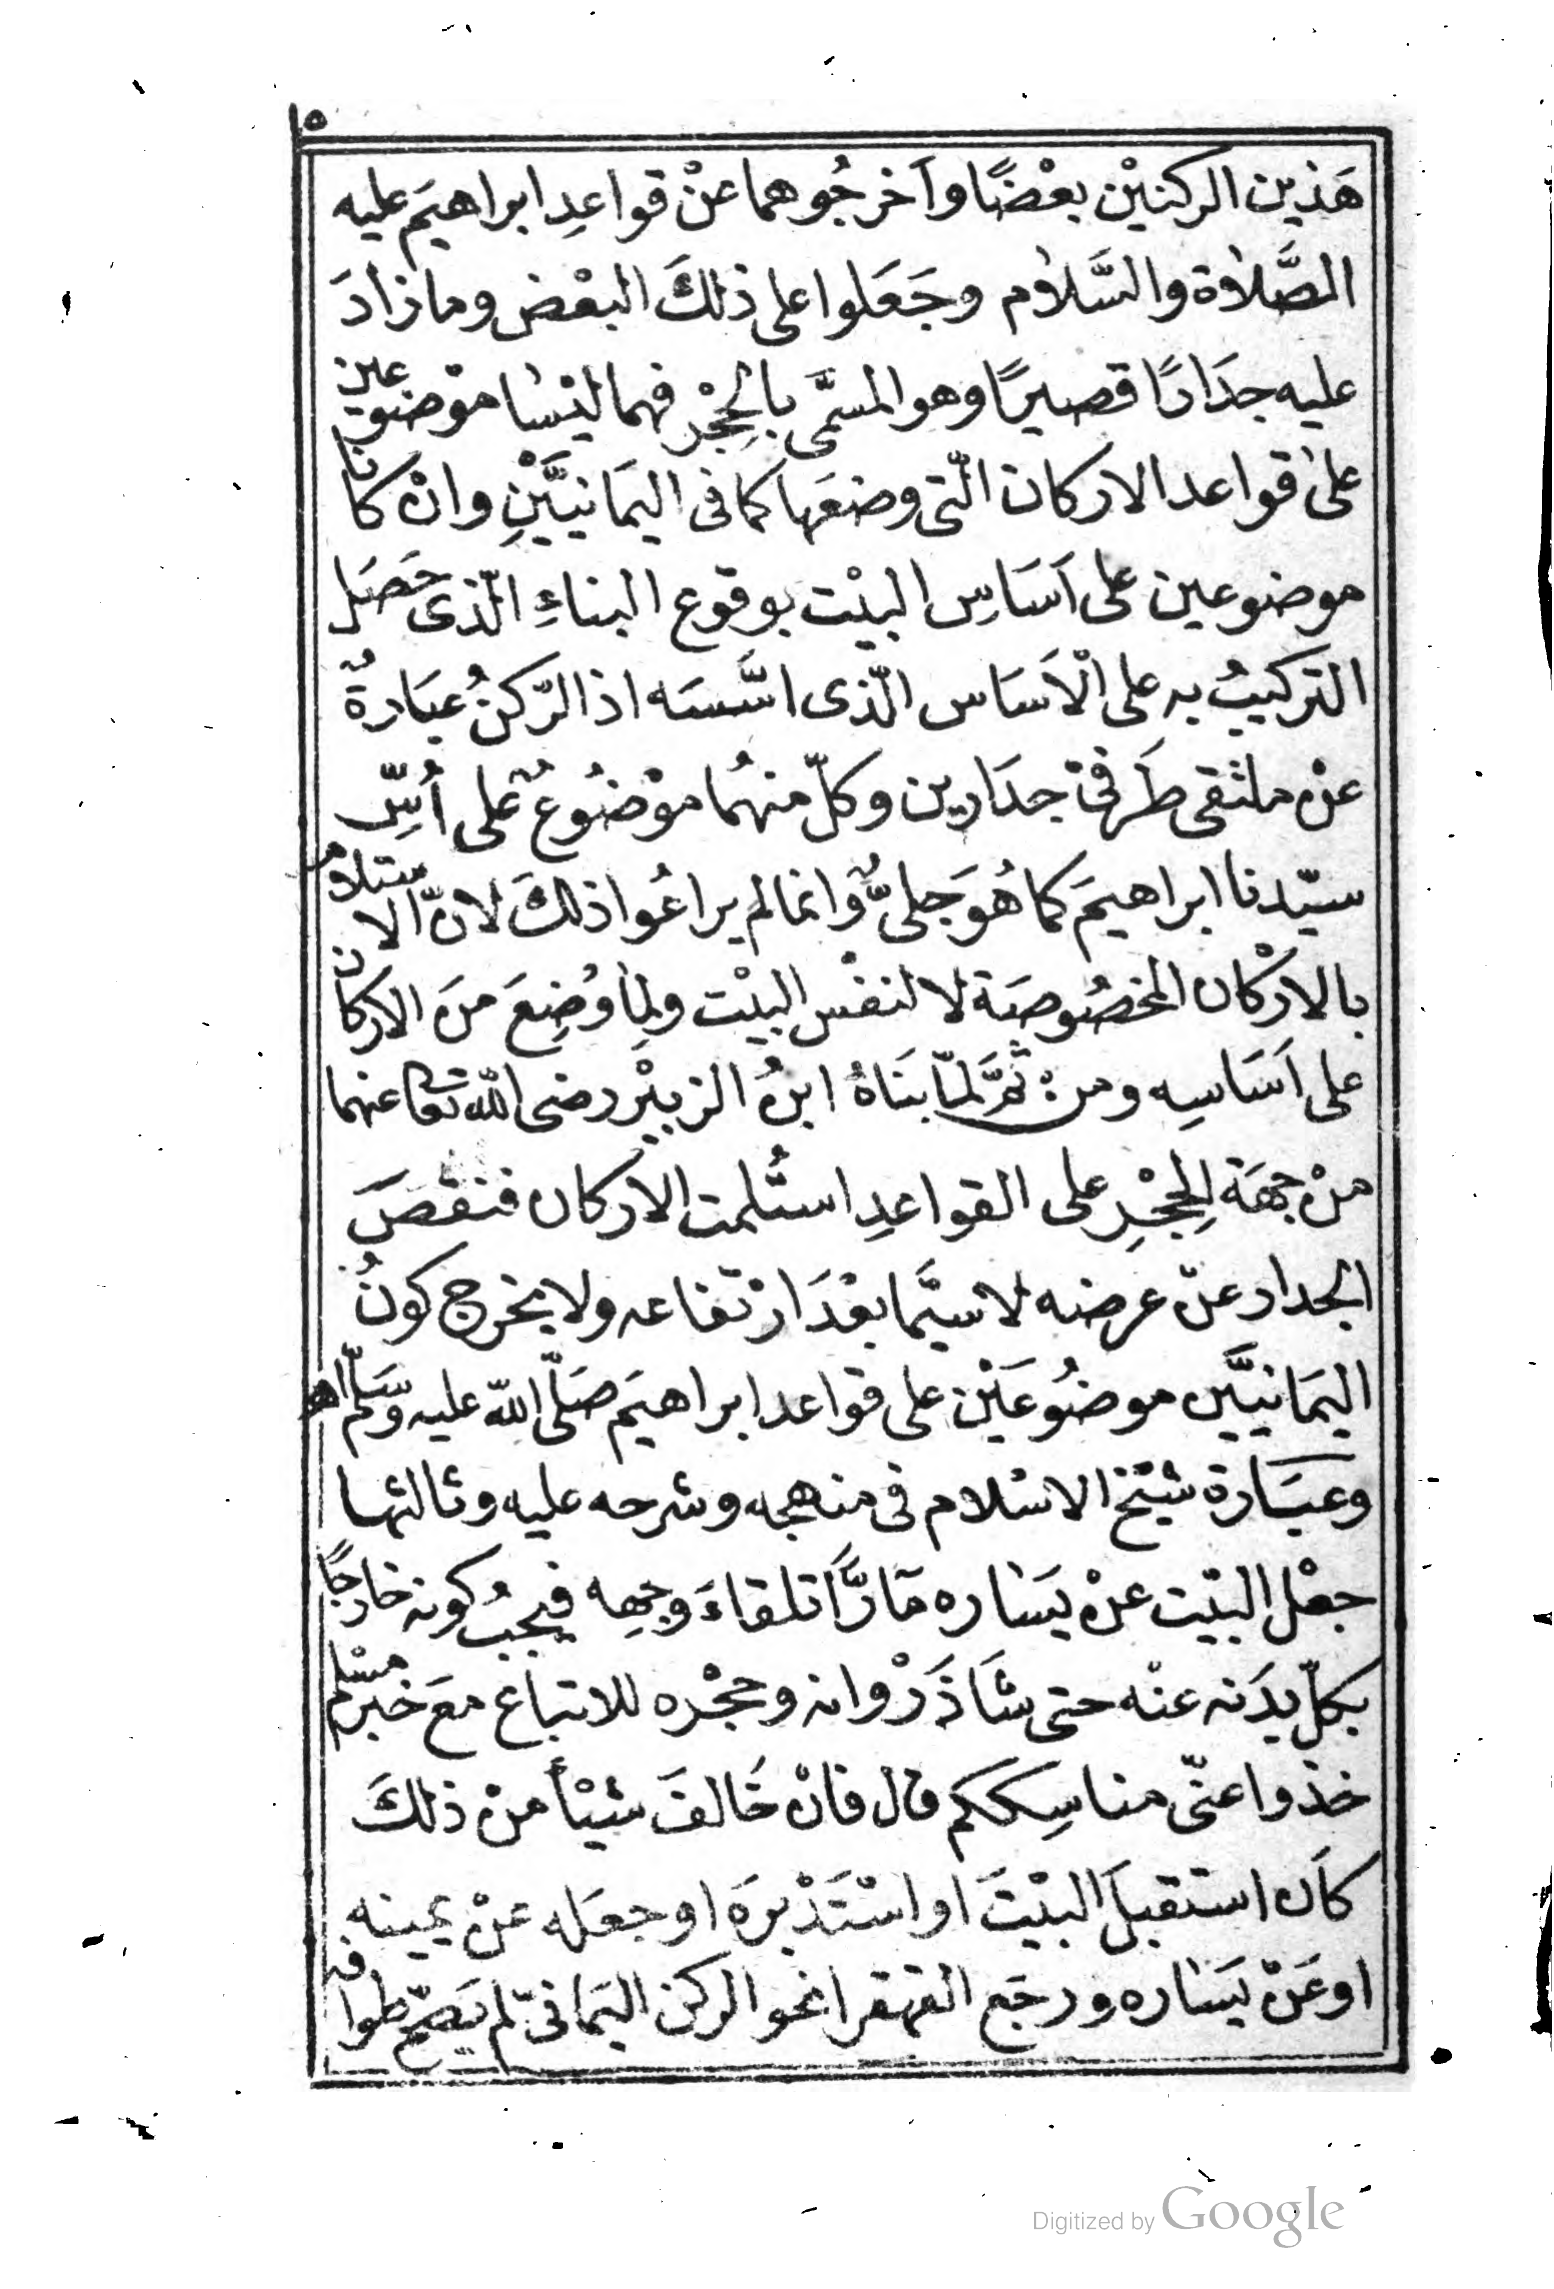 ٥
هَذين الركنيْن بعْضًا وأخرجُوهما عنْ قواعدِ ابراهيَم عليه
الصَّلاة والسَّلام وجَعَلوا على ذلكَ البعْض وما زادَ
عليه جدَارًا قصيرًا وهو المسمَّى بالحِجْر فهما ليْسَا موْضوعين
على قواعد الاركان الّتى وضعَها كما فى اليمَانيَّيْنِ وانْ كانا
موضوعين على اَسَاسِ البيْت بوقوع البناءِ الّذى حَصَل
التركيبُ به على الْاَسَاس الّذى اسَّسَه اذ الرّكنُ عبَارةٌ
عنْ ملتقى طَرفىْ جدَارين وكلّ منهُما موْضُوعٌ على اُسِّ
سيّدنا ابراهيمَ كما هُوَ جَلىٌّ وانما لم يراعُوا ذلكَ لانّ الاستلام
بالارْكان المخصُوصَة لا لنفْس البيْت ولما وُضِعَ منَ الاركان
على اَسَاسِه ومنْ ثَمَّ لمّا بنَاهُ ابنُ الزبيْر رضى اللّه تعالى عنهما
منْ جهَة الحِجْرِ على القواعدِ استُلمت الاركان فنقْصَ
الجدار عنْ عرضه لا سيَّما بعْدَ ارْتفاعه ولا يخرج كونُ
اليمَانيَّين موضُوعَيْن على قواعد ابراهيَم صَلّى اللّه عليه وسَلّم اهـ
وعبَارة شيْخ الاسْلام فى منهجه وشرحه عليه وثالثها
جعْل البيْت عنْ يسَاره مَارًّا تلقاءَ وجهِه فيجبُ كونه خارجًا
بكلّ بدَنه عنْه حتى شَاذَرْوانه وحجْره للاتباع معَ خبر مسْلم
خذوا عنّى مناسِككم قال فانْ خَالفَ شيْأ منْ ذلكَ
كاَن استقبلَ البيْتَ او اسْتَدْبرَه او جعَله عنْ يمينه
او عَنْ يسَاره ورجَع القهقرا نحو الركن اليمَانىّ لم يَصحّ طوافه
Digitized by Google